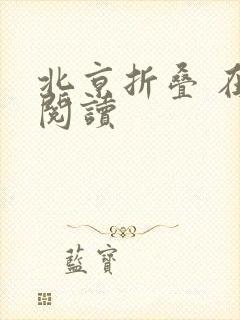 北京折叠 在
閱讀
藍寶